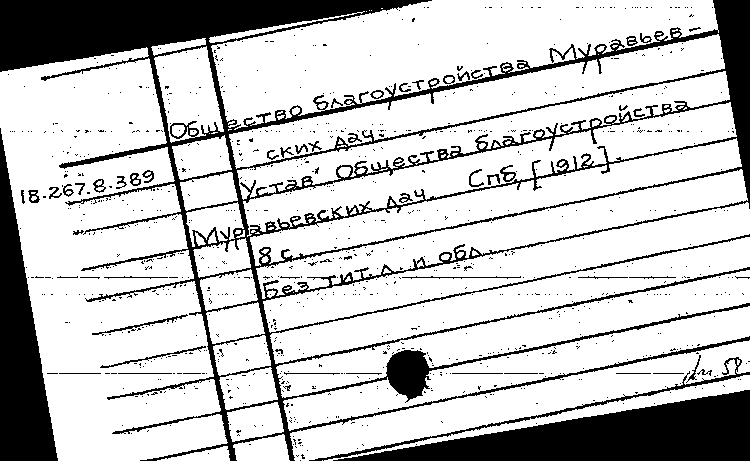 Общество благоустройства Муравьев-
ских дач.
18.267.8.389
Уставъ Общества благоустройства
Муравьевских дач. Спб, [1912].
8 с.
Без тит. л. и обл.
58